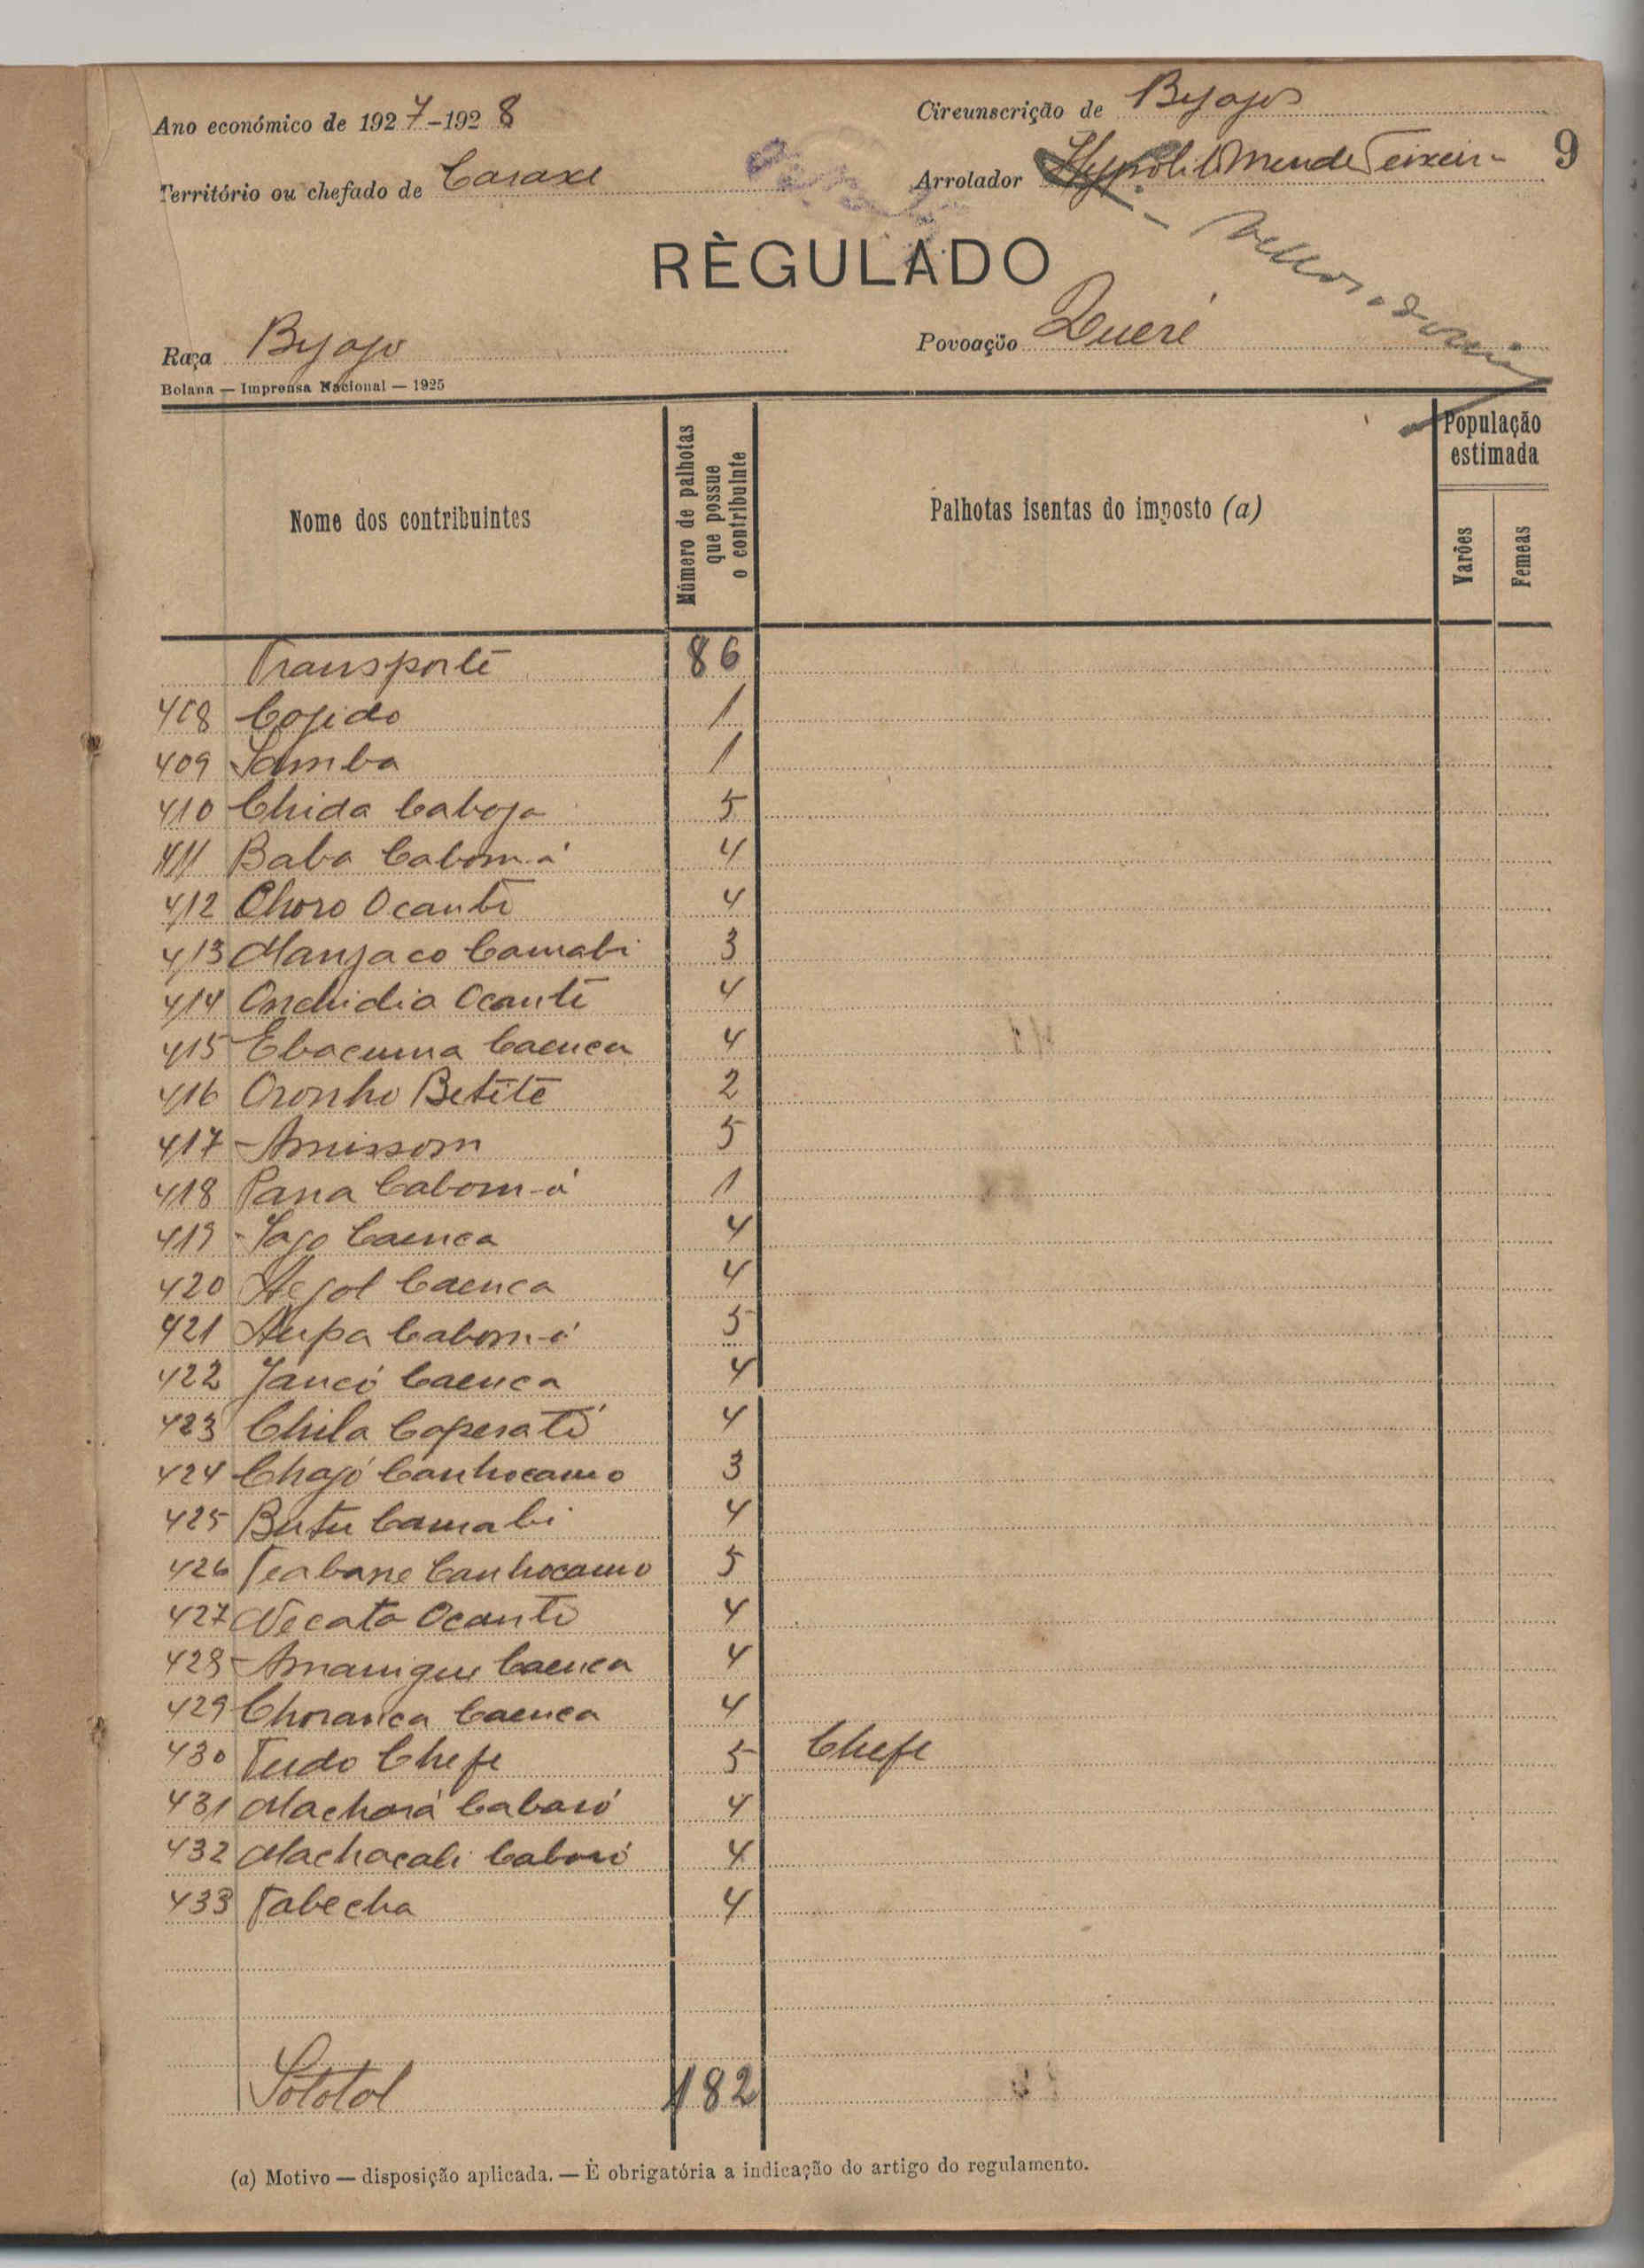 Ano económico de 1927-1928
Circunscrição de Byagos
9
Território ou chefado de Caraxe
Arrolador Hypolito Mende Teixeira
RÈGULADO
Raça Byago
Povoação Queré
Bolama — Imprensa Nacional — 1925
Nome dos contribuintes
Número de palhotas que possue o contribuinte
Palhotas isentas do imposto (a)
População estimada
Varões
Femeas
Transporte 86
408 Cojido 1
409 Samba 1
410 Chida Caboja 5
411 Baba Cabom-á 4
412 Choro Ocante 4
413 Manjaco Camabi 3
414 Onchidia Ocante 4
415 Ebacuma Caenca 4
416 Oronho Betête 2
417 Amissom 5
418 Pana Cabom-á 1
419 Jago Caenca 4
420 Aejol Caenca 4
421 Aupa Cabom-á 5
422 Jancó Caenca 4
423 Chila Caperató 4
424 Chajó Canhocamo 3
425 Butu Camabi 4
426 Teabane Canhocamo 5
427 Necato Ocante 4
428 Amanigue Caenca 4
429 Choranca Caenca 4
430 Tudo Chefe 5 Chefe
431 Machorá Cabaró 4
432 Machacali Cabaró 4
433 Tabecha 4
Sótotal 182
(a) Motivo — disposição aplicada. — È obrigatória a indicação do artigo do regulamento.